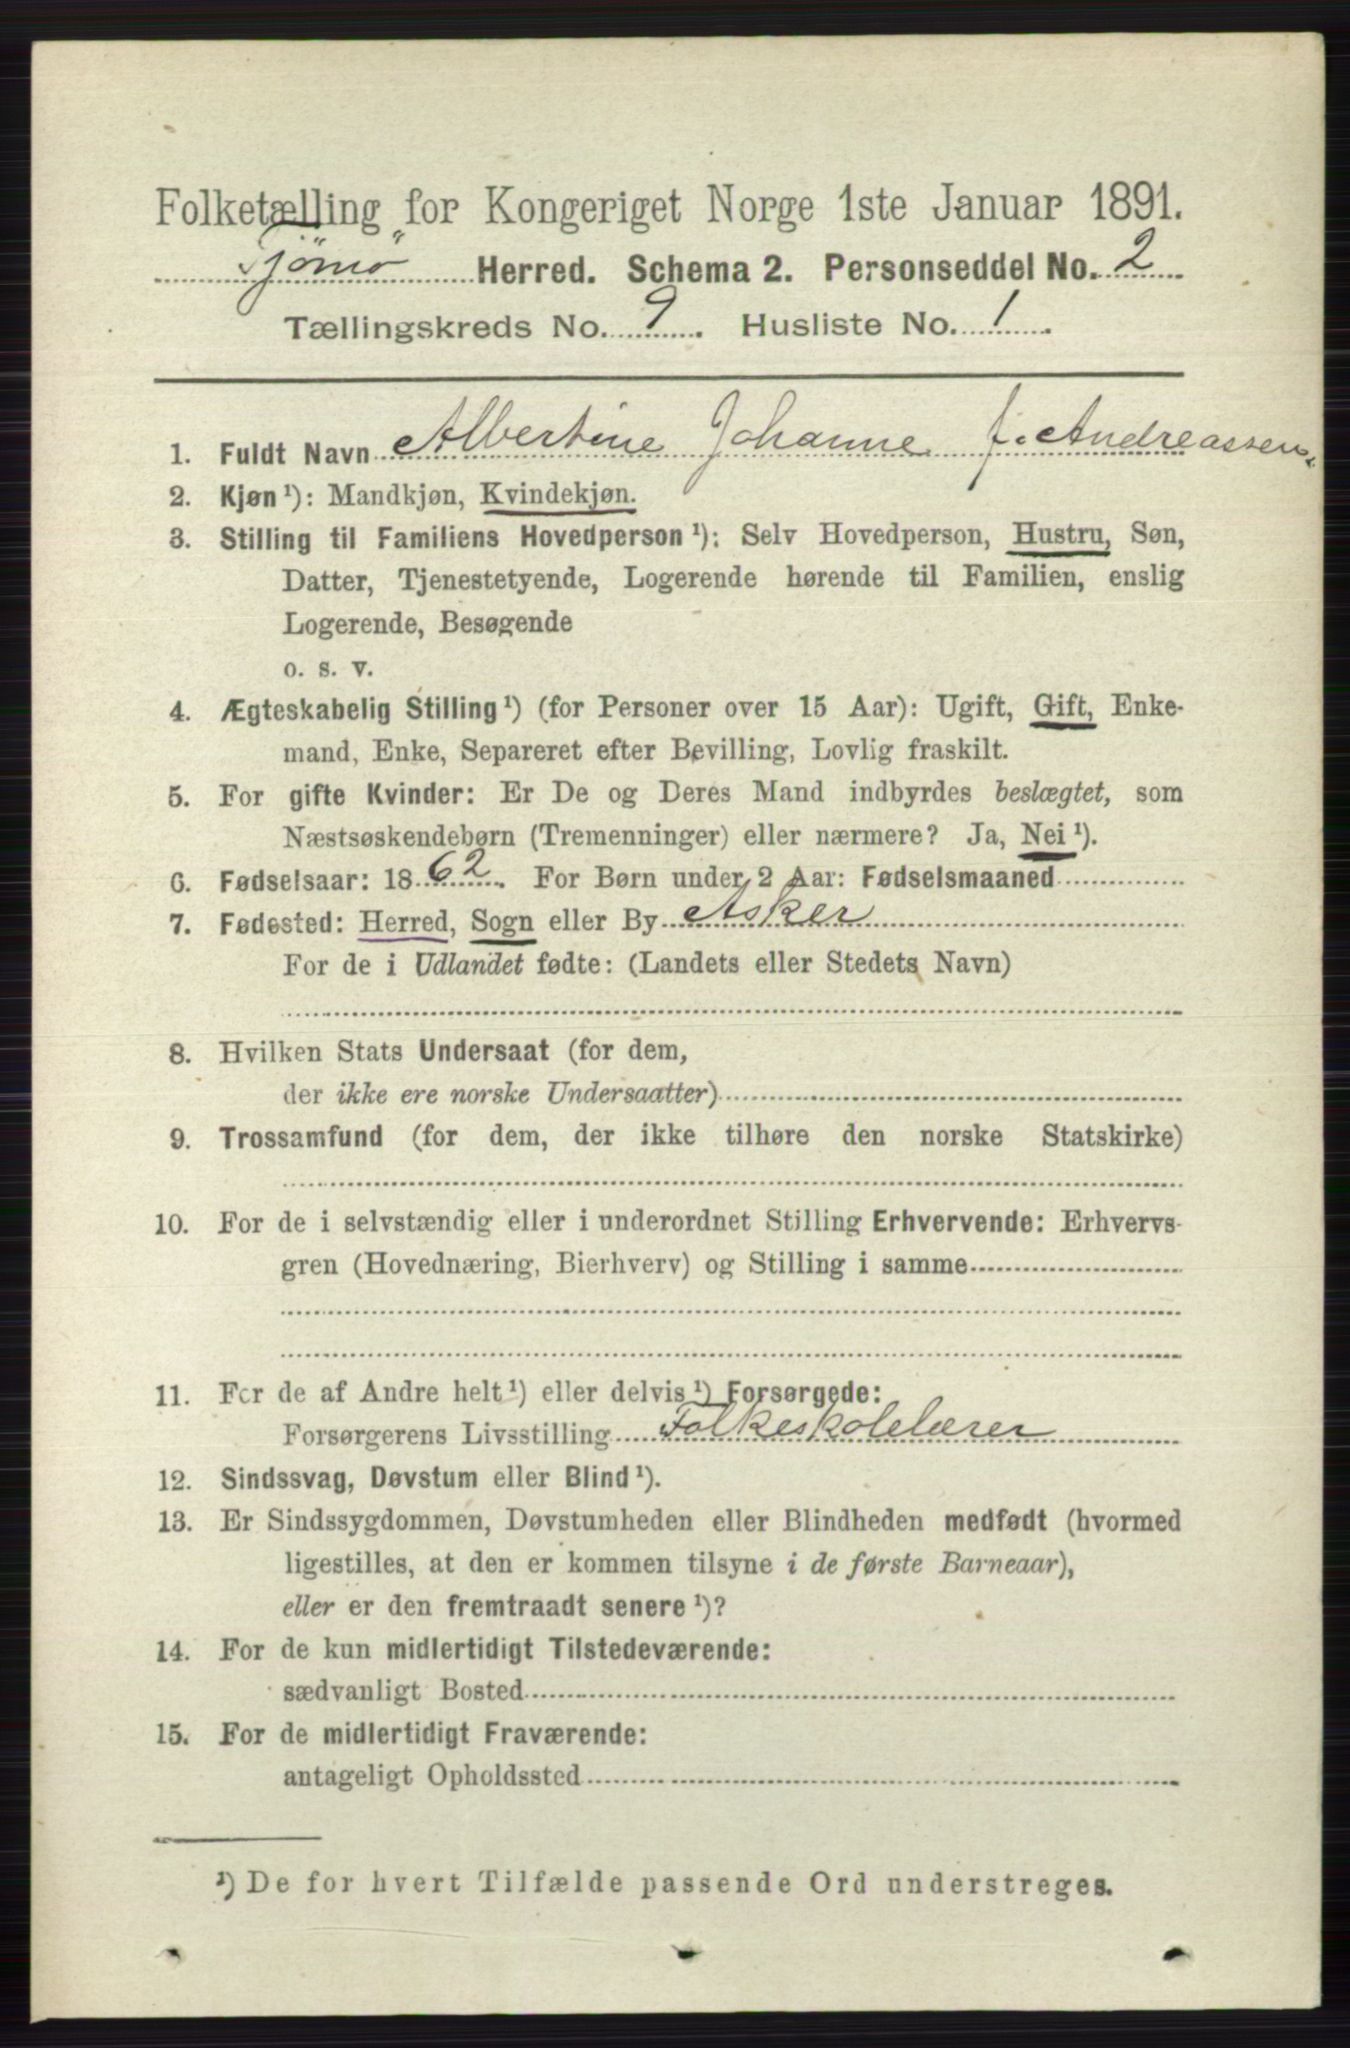 Folketælling for Kongeriget Norge 1ste Januar 1891.
Tjömö Herred. Schema 2. Personseddel No. 2
Tællingskreds No. 9. Husliste No. 1.
1. Fuldt Navn Albertine Johanne f. Andreassen.
2. Kjøn ¹): Mandkjøn, Kvindekjøn.
3. Stilling til Familiens Hovedperson ¹): Selv Hovedperson, Hustru, Søn,
Datter, Tjenestetyende, Logerende hørende til Familien, enslig
Logerende, Besøgende
o. s. v.
4. Ægteskabelig Stilling ¹) (for Personer over 15 Aar): Ugift, Gift, Enke-
mand, Enke, Separeret efter Bevilling, Lovlig fraskilt.
5. For gifte Kvinder: Er De og Deres Mand indbyrdes beslægtet, som
Næstsøskendebørn (Tremenninger) eller nærmere? Ja, Nei ¹).
6. Fødselsaar: 1862. For Børn under 2 Aar: Fødselsmaaned
7. Fødested: Herred, Sogn eller By Asker
For de i Udlandet fødte: (Landets eller Stedets Navn)
8. Hvilken Stats Undersaat (for dem,
der ikke ere norske Undersaatter)
9. Trossamfund (for dem, der ikke tilhøre den norske Statskirke)
10. For de i selvstændig eller i underordnet Stilling Erhvervende: Erhvervs-
gren (Hovednæring, Bierhverv) og Stilling i samme
11. For de af Andre helt ¹) eller delvis ¹) Forsørgede:
Forsørgerens Livsstilling Folkeskolelærer
12. Sindssvag, Døvstum eller Blind ¹).
13. Er Sindssygdommen, Døvstumheden eller Blindheden medfødt (hvormed
ligestilles, at den er kommen tilsyne i de første Barneaar),
eller er den fremtraadt senere ¹)?
14. For de kun midlertidigt Tilstedeværende:
sædvanligt Bosted
15. For de midlertidigt Fraværende:
antageligt Opholdssted
¹) De for hvert Tilfælde passende Ord understreges.